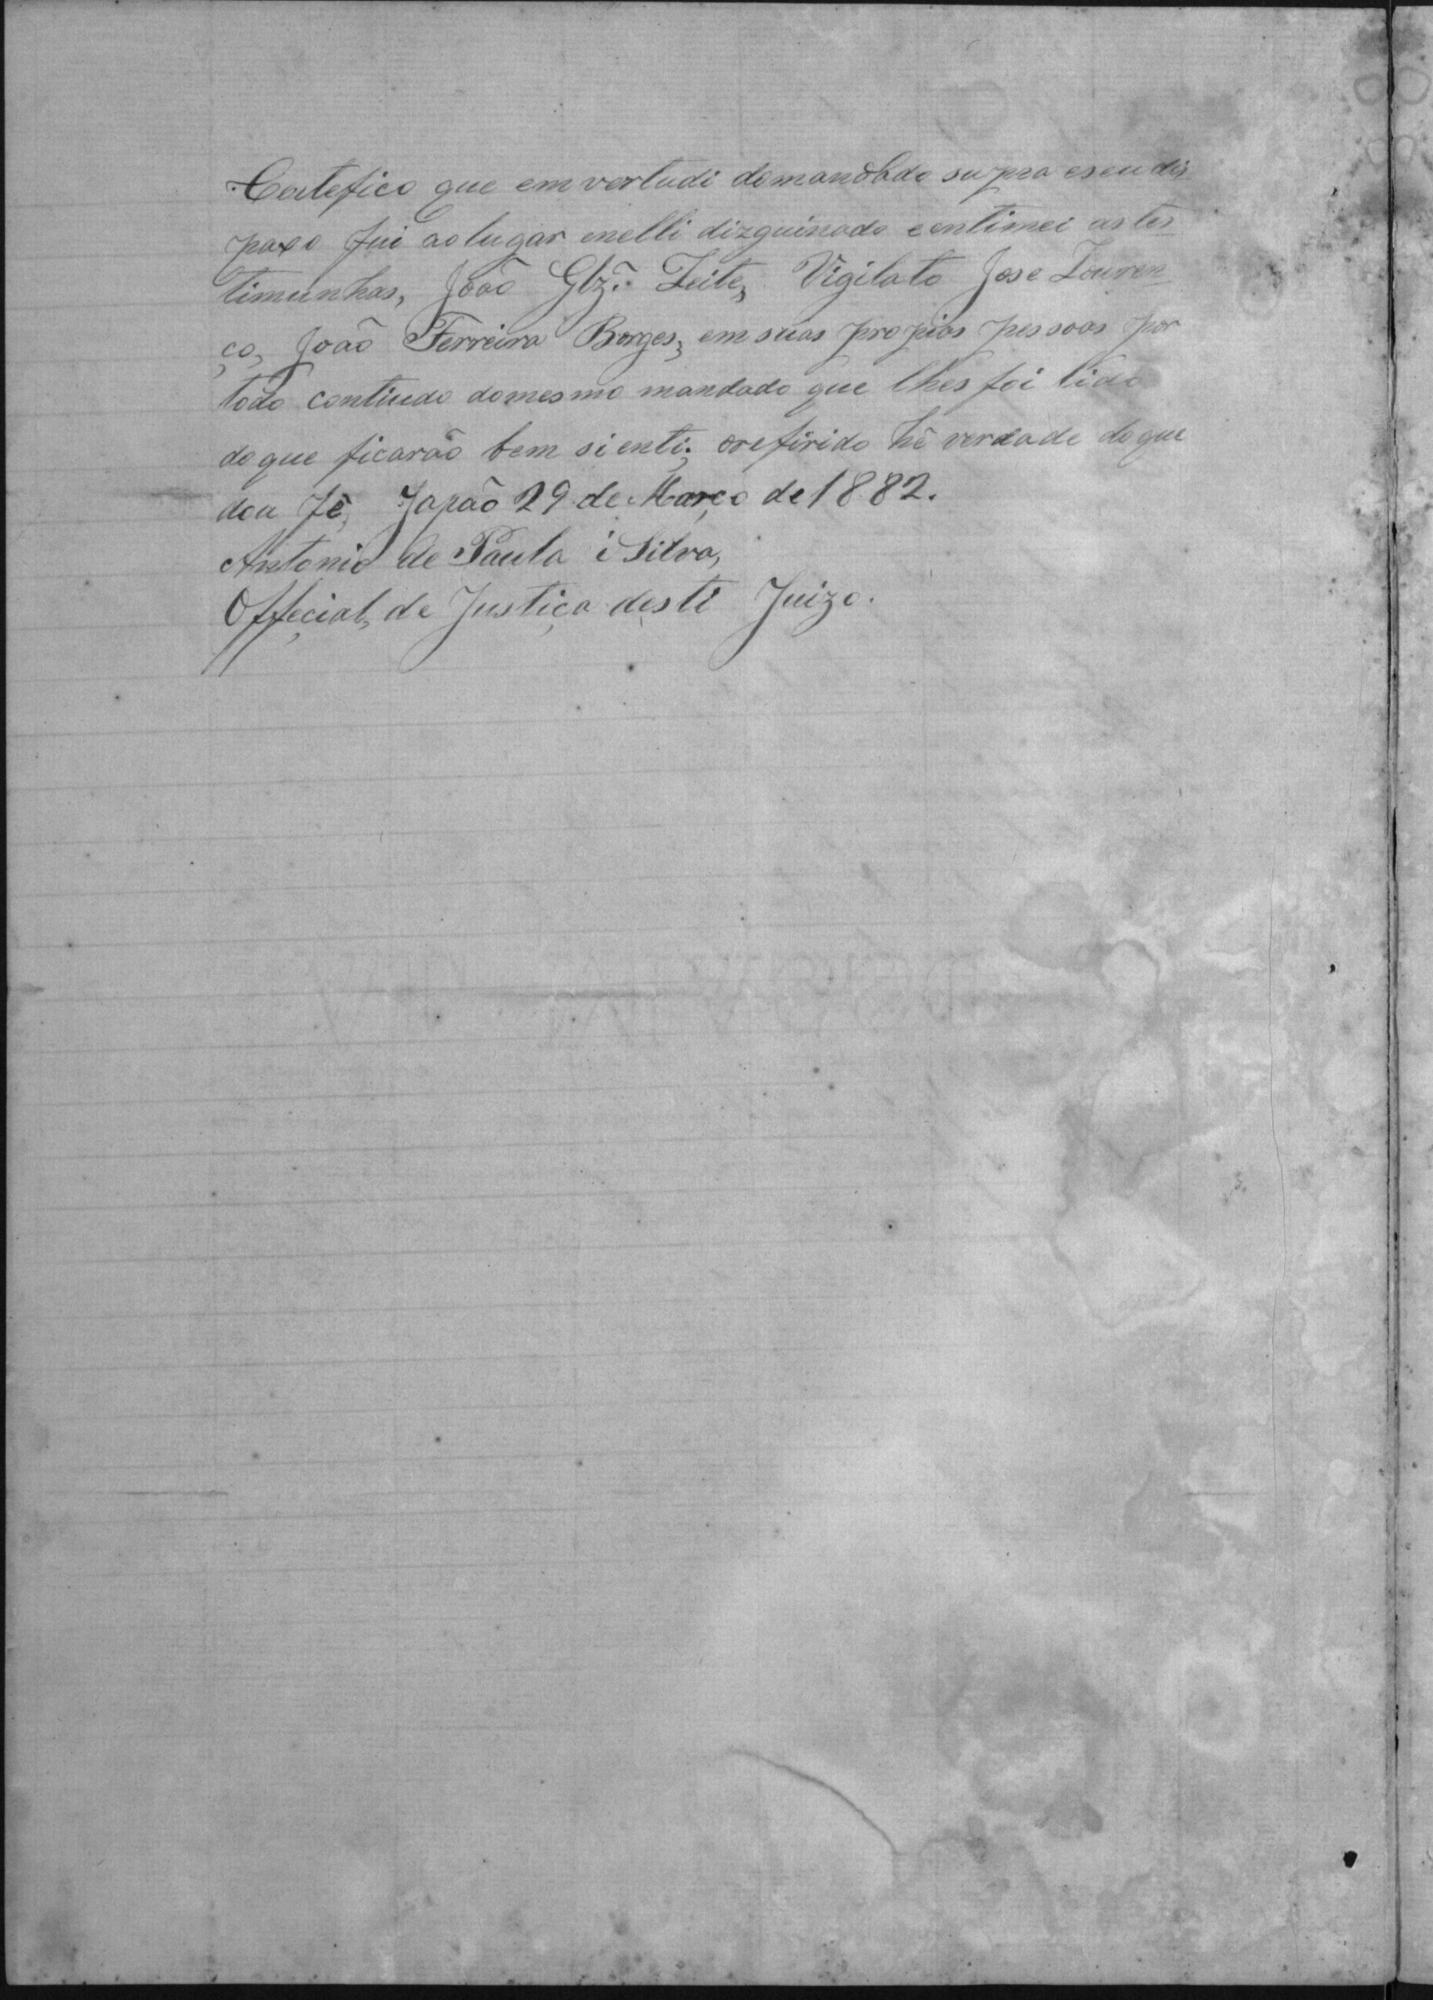 Certefico que em vertudi do mandado supra e seu dis
paxo fui ao lugar enelli dizguinado e entimei as tes
timunhas, João Glz.ͣ Leite, Vigilato Jose Louren
ço, João Ferreira Borges, em suas propias pessoas por
todo contiudo do mesmo mandado que lhes foi lido
do que ficarão bem sienti; o refirido hê verdade do que
dou fê, Japão 29 de Março de 1882.
Antonio de Paula i Silva,
Offecial, de Justiça desti Juizo.